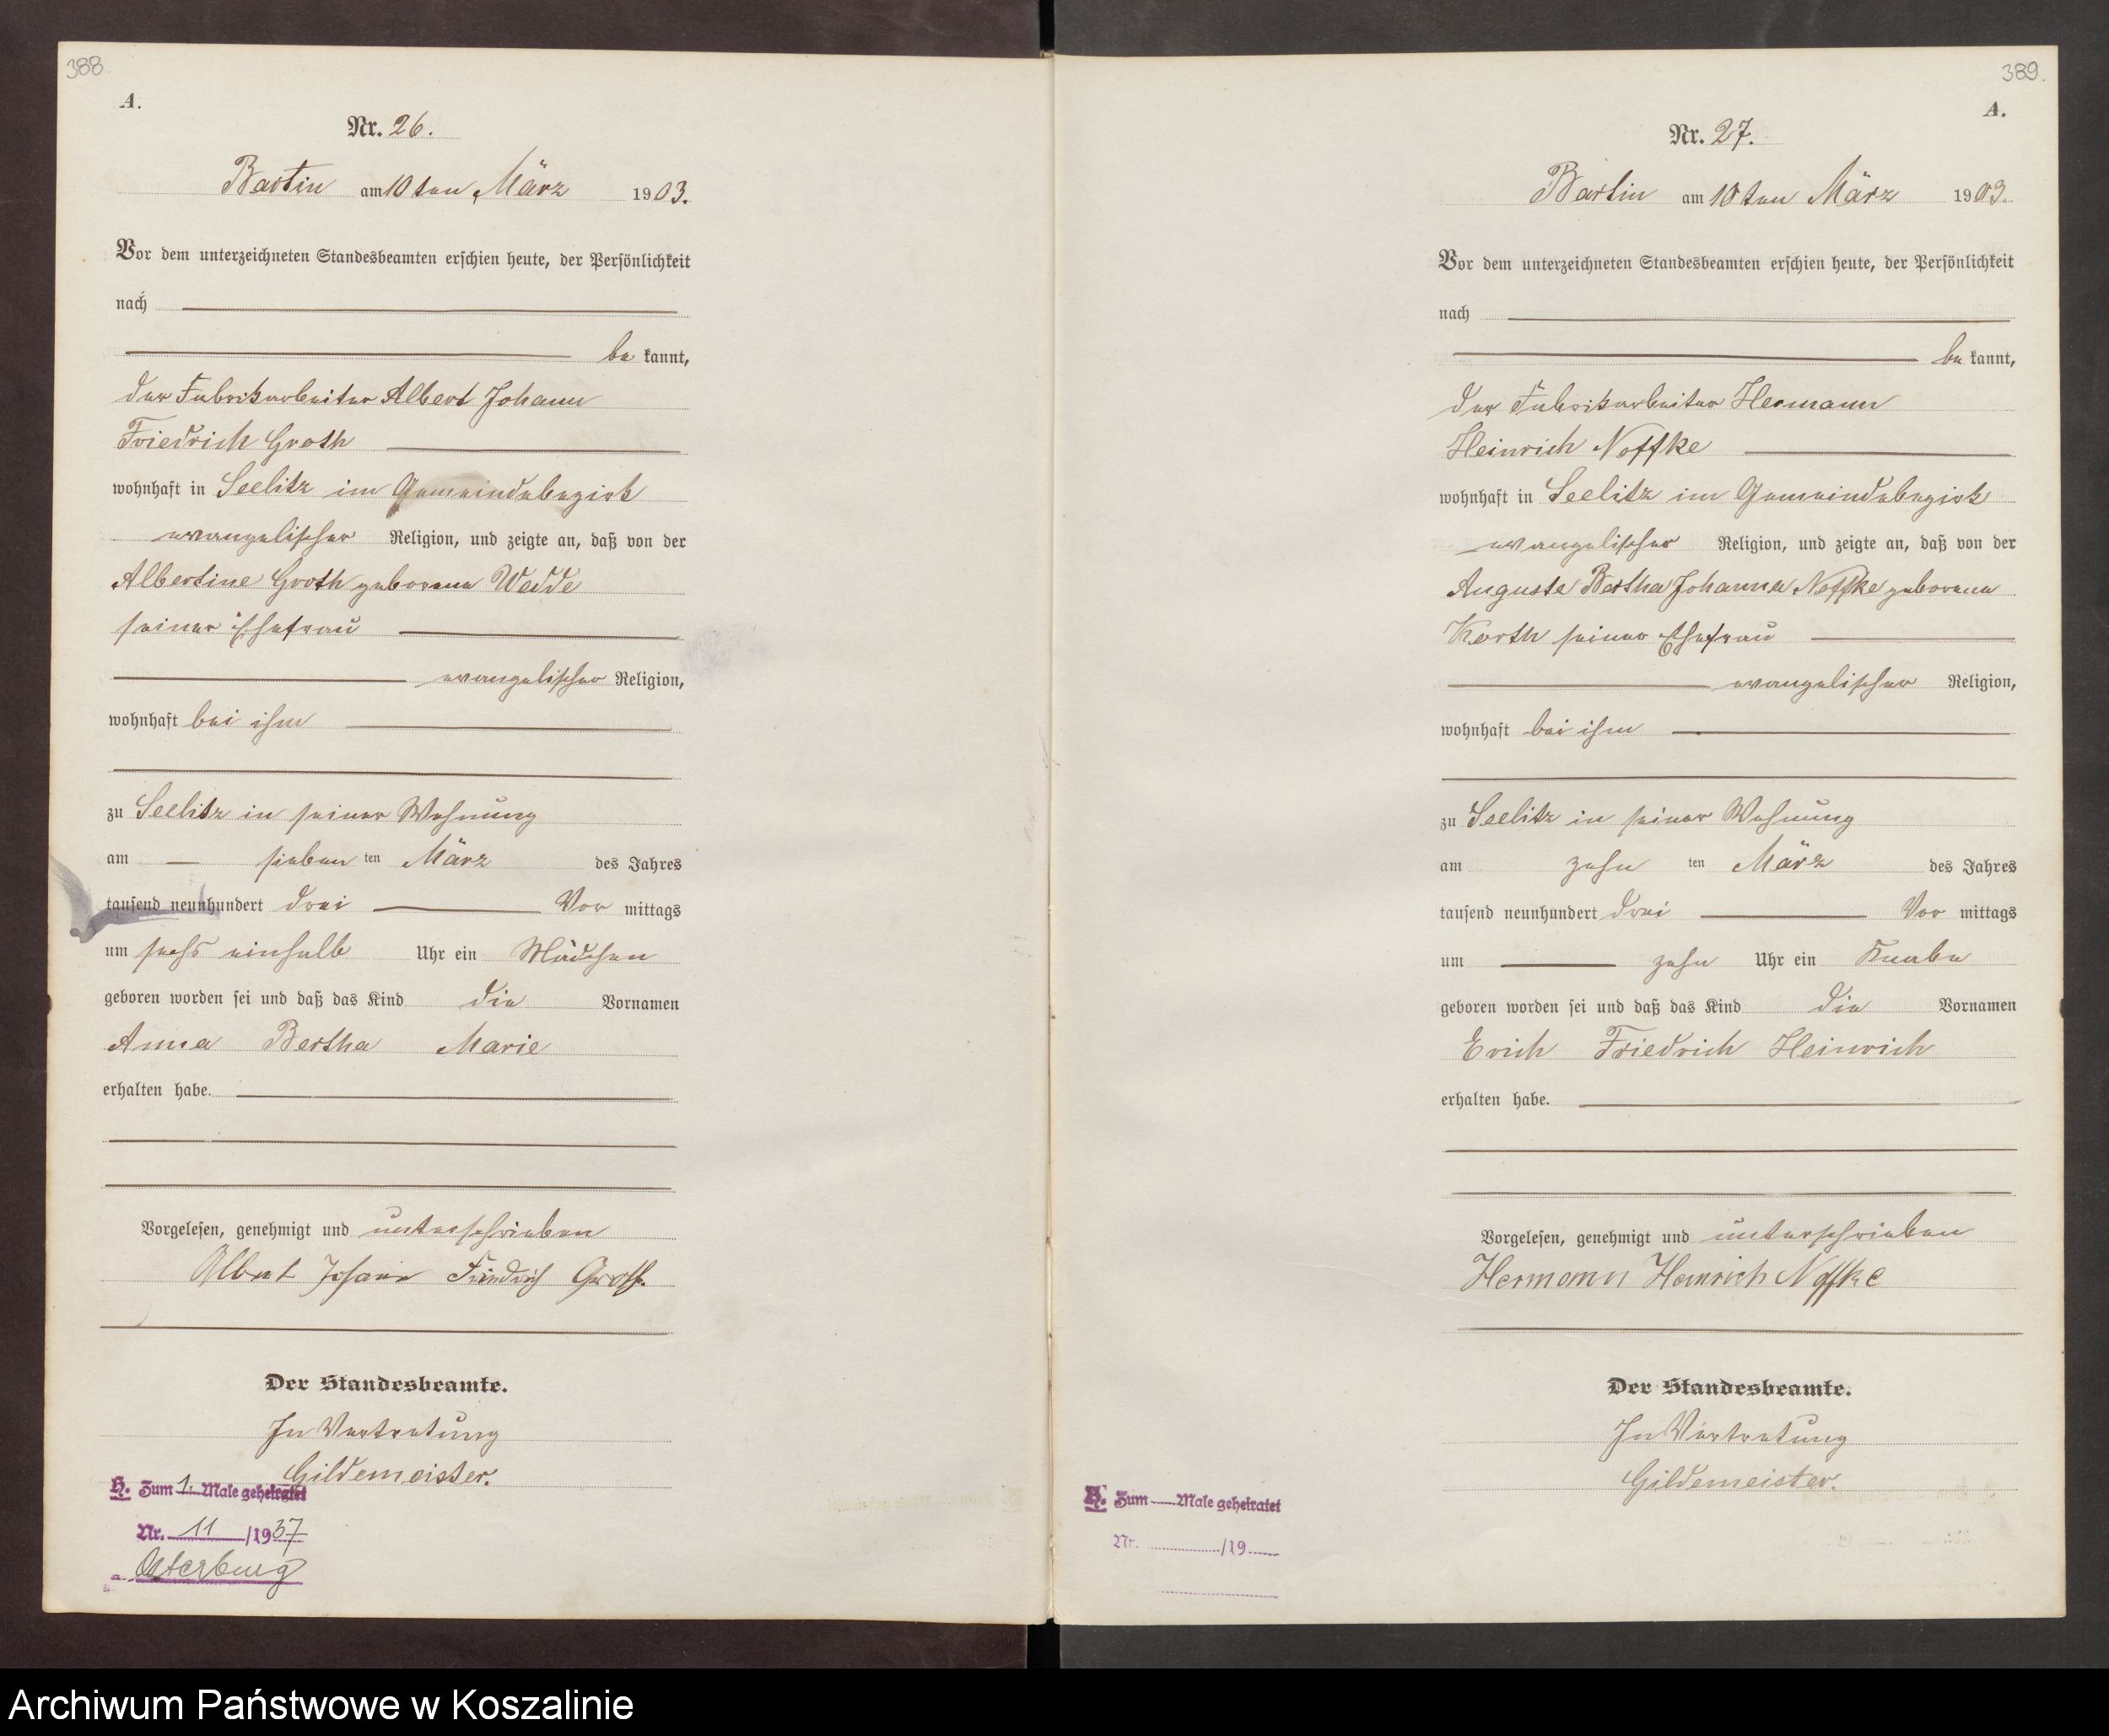 388.
A.
Nr. 26.
Bartin am 10ten März 1903.
Vor dem unterzeichneten Standesbeamten erschien heute, der Persönlichkeit
nach
be kannt,
der Fabrikarbeiter Albert Johann
Friedrich Groth
wohnhaft in Seelitz im Gemeindebezirk
evangelischer Religion, und zeigte an, daß von der
Albertine Groth geborene Wedde
seiner Ehefrau
evangelischer Religion,
wohnhaft bei ihm
zu Seelitz in seiner Wohnung
am — sieben ten März des Jahres
tausend neunhundert drei Vor mittags
um sechs einhalb Uhr ein Mädchen
geboren worden sei und daß das Kind die Vornamen
Anna Bertha Marie
erhalten habe.
Vorgelesen, genehmigt und unterschrieben
Albert Johann Friedrich Groth.
Der Standesbeamte.
In Vertretung
Gildemeister.
H. Zum 1. Male geheiratet
Nr. 11 /1937
Osterburg
389.
A.
Nr. 27.
Bartin am 10ten März 1903.
Vor dem unterzeichneten Standesbeamten erschien heute, der Persönlichkeit
nach
be kannt,
der Fabrikarbeiter Hermann
Heinrich Noffke
wohnhaft in Seelitz im Gemeindebezirk
evangelischer Religion, und zeigte an, daß von der
Auguste Bertha Johanna Noffke geborene
Korth seiner Ehefrau
evangelischer Religion,
wohnhaft bei ihm
zu Seelitz in seiner Wohnung
am zehn ten März des Jahres
tausend neunhundert drei Vor mittags
um zehn Uhr ein Knabe
geboren worden sei und daß das Kind die Vornamen
Erich Friedrich Heinrich
erhalten habe.
Vorgelesen, genehmigt und unterschrieben
Hermann Heinrich Noffke
Der Standesbeamte.
In Vertretung
Gildemeister.
H. Zum Male geheiratet
Nr. /19
Archiwum Państwowe w Koszalinie